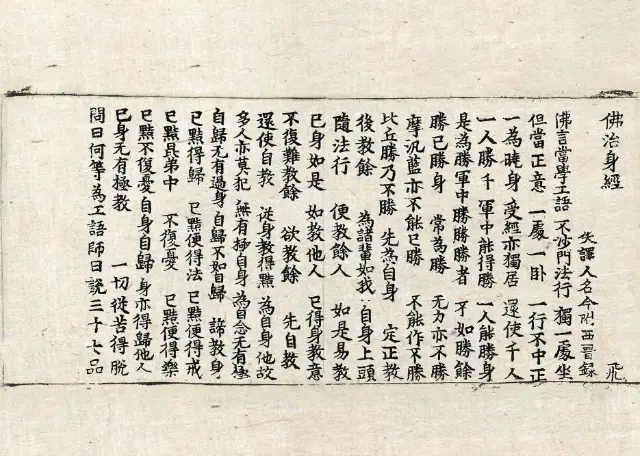 佛治身經 飛
失譯人名今附西晉錄
佛言當學工語 不沙門法行 獨一處坐
但當正意 一處一卧 一行不中正
一為曉身 受經亦獨居 還使千人
一人勝千 軍中能得勝 一人能勝身
是為勝軍中勝勝勝者 牙如勝餘
勝已勝身 常為勝 无力亦不勝
摩沉藍亦不能已勝 不能作不勝
比丘勝乃不勝 先為自身 定正教
後教餘 為諸輩如我 自身上頭
隨法行 便教餘人 如是易教
已身如是 如教他人 已得身教意
不復難教餘 欲教餘 先自教
還使自教 從身教得黠 為自身他故
多人亦莫犯 無有極自身 為自念无有極
自歸无有過身 自歸不如自歸 諦教身
已黠得歸 已黠便得法 已黠便得戒
已黠具弟中 不復憂 已黠便得樂
已黠不復憂自身自歸 身亦得歸他人
已身无有極教 一切從苦得脫
問曰何等為工語 師曰說三十七品